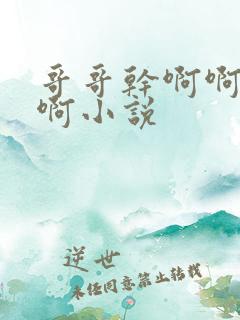 哥哥幹啊啊
啊小説
逆世
未经同意禁止转载